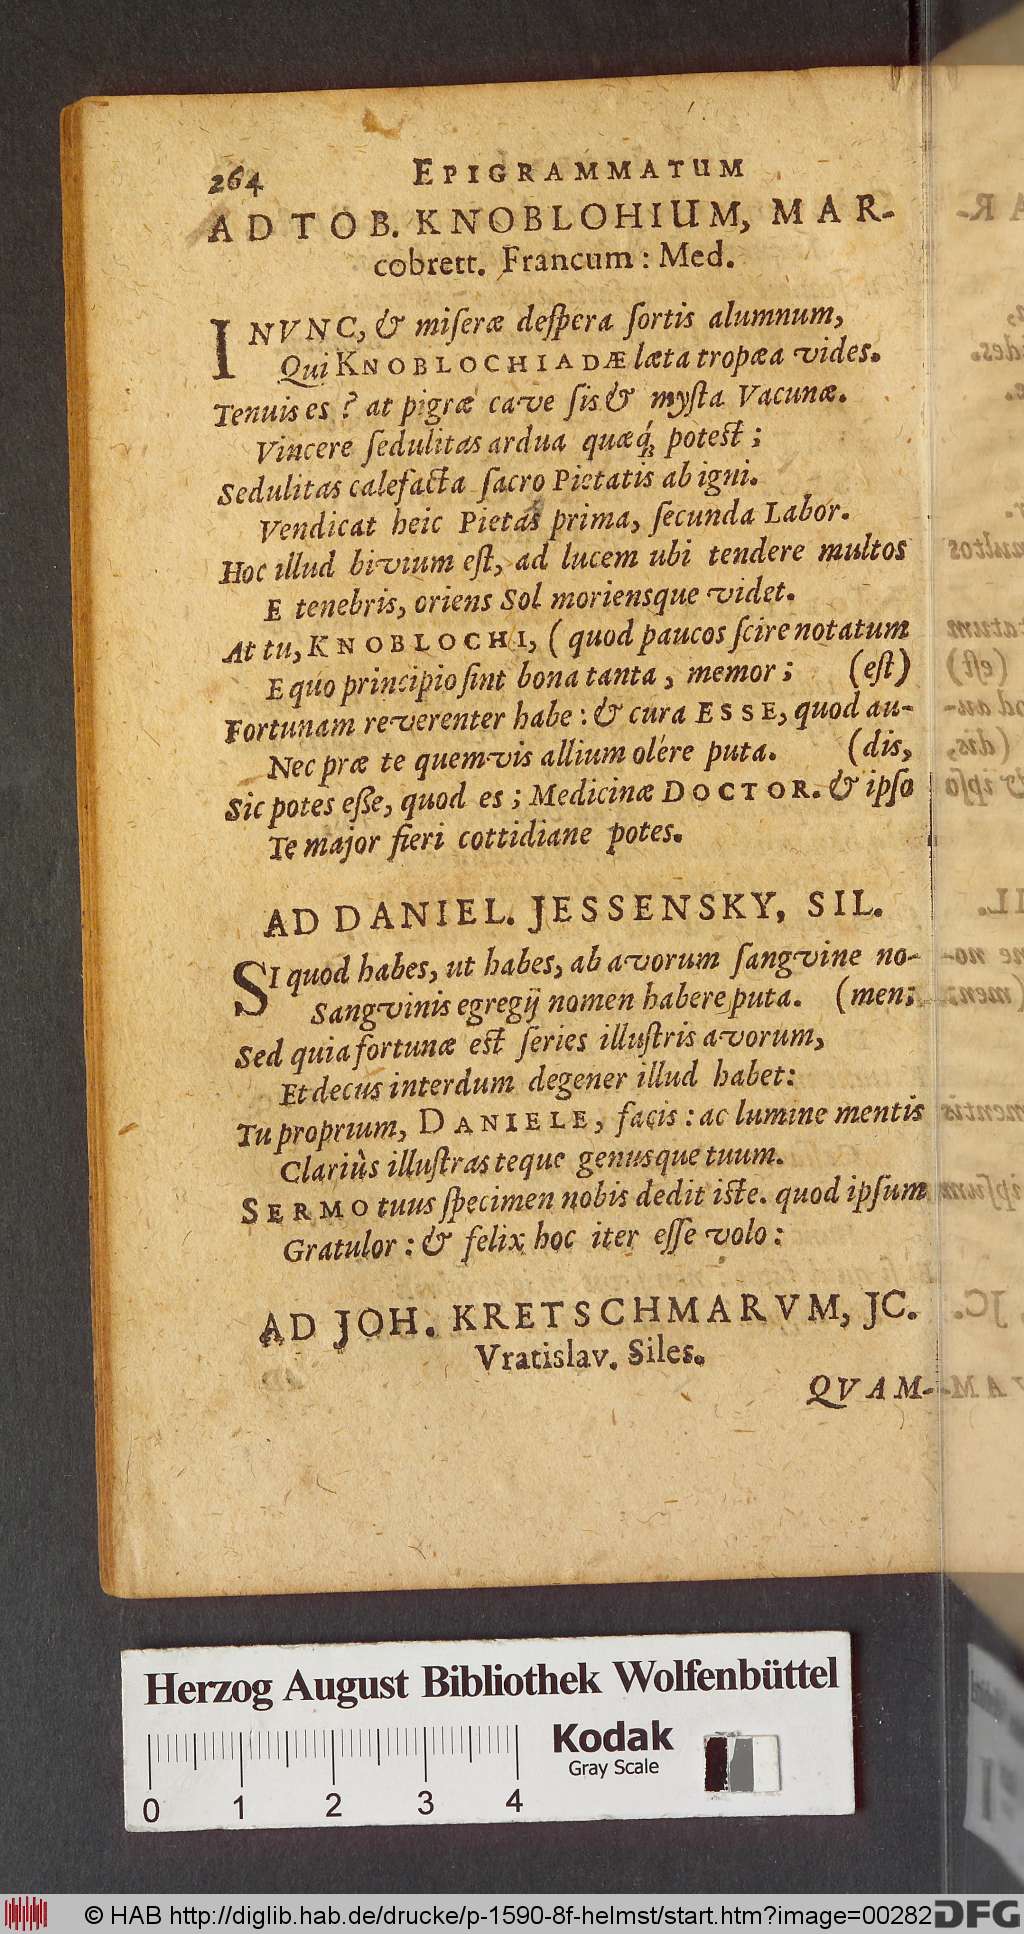 264 EPIGRAMMATUM
AD TOB. KNOBLOHIUM, MAR-
cobrett. Francum: Med.
I NVNC, & miseræ despera sortis alumnum,
Qui KNOBLOCHIADÆ læta tropæa vides.
Tenuis es? at pigræ cave sis & mysta Vacunæ.
Vincere sedulitas ardua quæq́; potest;
Sedulitas calefacta sacro Pietatis ab igni.
Vendicat heic Pietas prima, secunda Labor.
Hoc illud bivium est, ad lucem ubi tendere multos
E tenebris, oriens Sol moriensque videt.
At tu, KNOBLOCHI, (quod paucos scire notatum
E quo principio sint bona tanta, memor; (est)
Fortunam reverenter habe: & cura ESSE, quod au-
Nec præ te quemvis allium olére puta. (dis,
Sic potes esse, quod es; Medicinæ DOCTOR. & ipso
Te major fieri cottidiane potes.
AD DANIEL. JESSENSKY, SIL.
SI quod habes, ut habes, ab avorum sangvine no-
Sangvinis egregij nomen habere puta. (men;
Sed quia fortunæ est series illustris avorum,
Et decus interdum degener illud habet:
Tu proprium, DANIELE, facis: ac lumine mentis
Clariùs illustras teque genusque tuum.
SERMO tuus specimen nobis dedit iste. quod ipsum
Gratulor: & felix hoc iter esse volo:
AD JOH. KRETSCHMARVM, JC.
Vratislav. Siles.
QVAM-
Herzog August Bibliothek Wolfenbüttel
Kodak
Gray Scale
0 1 2 3 4
© HAB http://diglib.hab.de/drucke/p-1590-8f-helmst/start.htm?image=00282
DFG